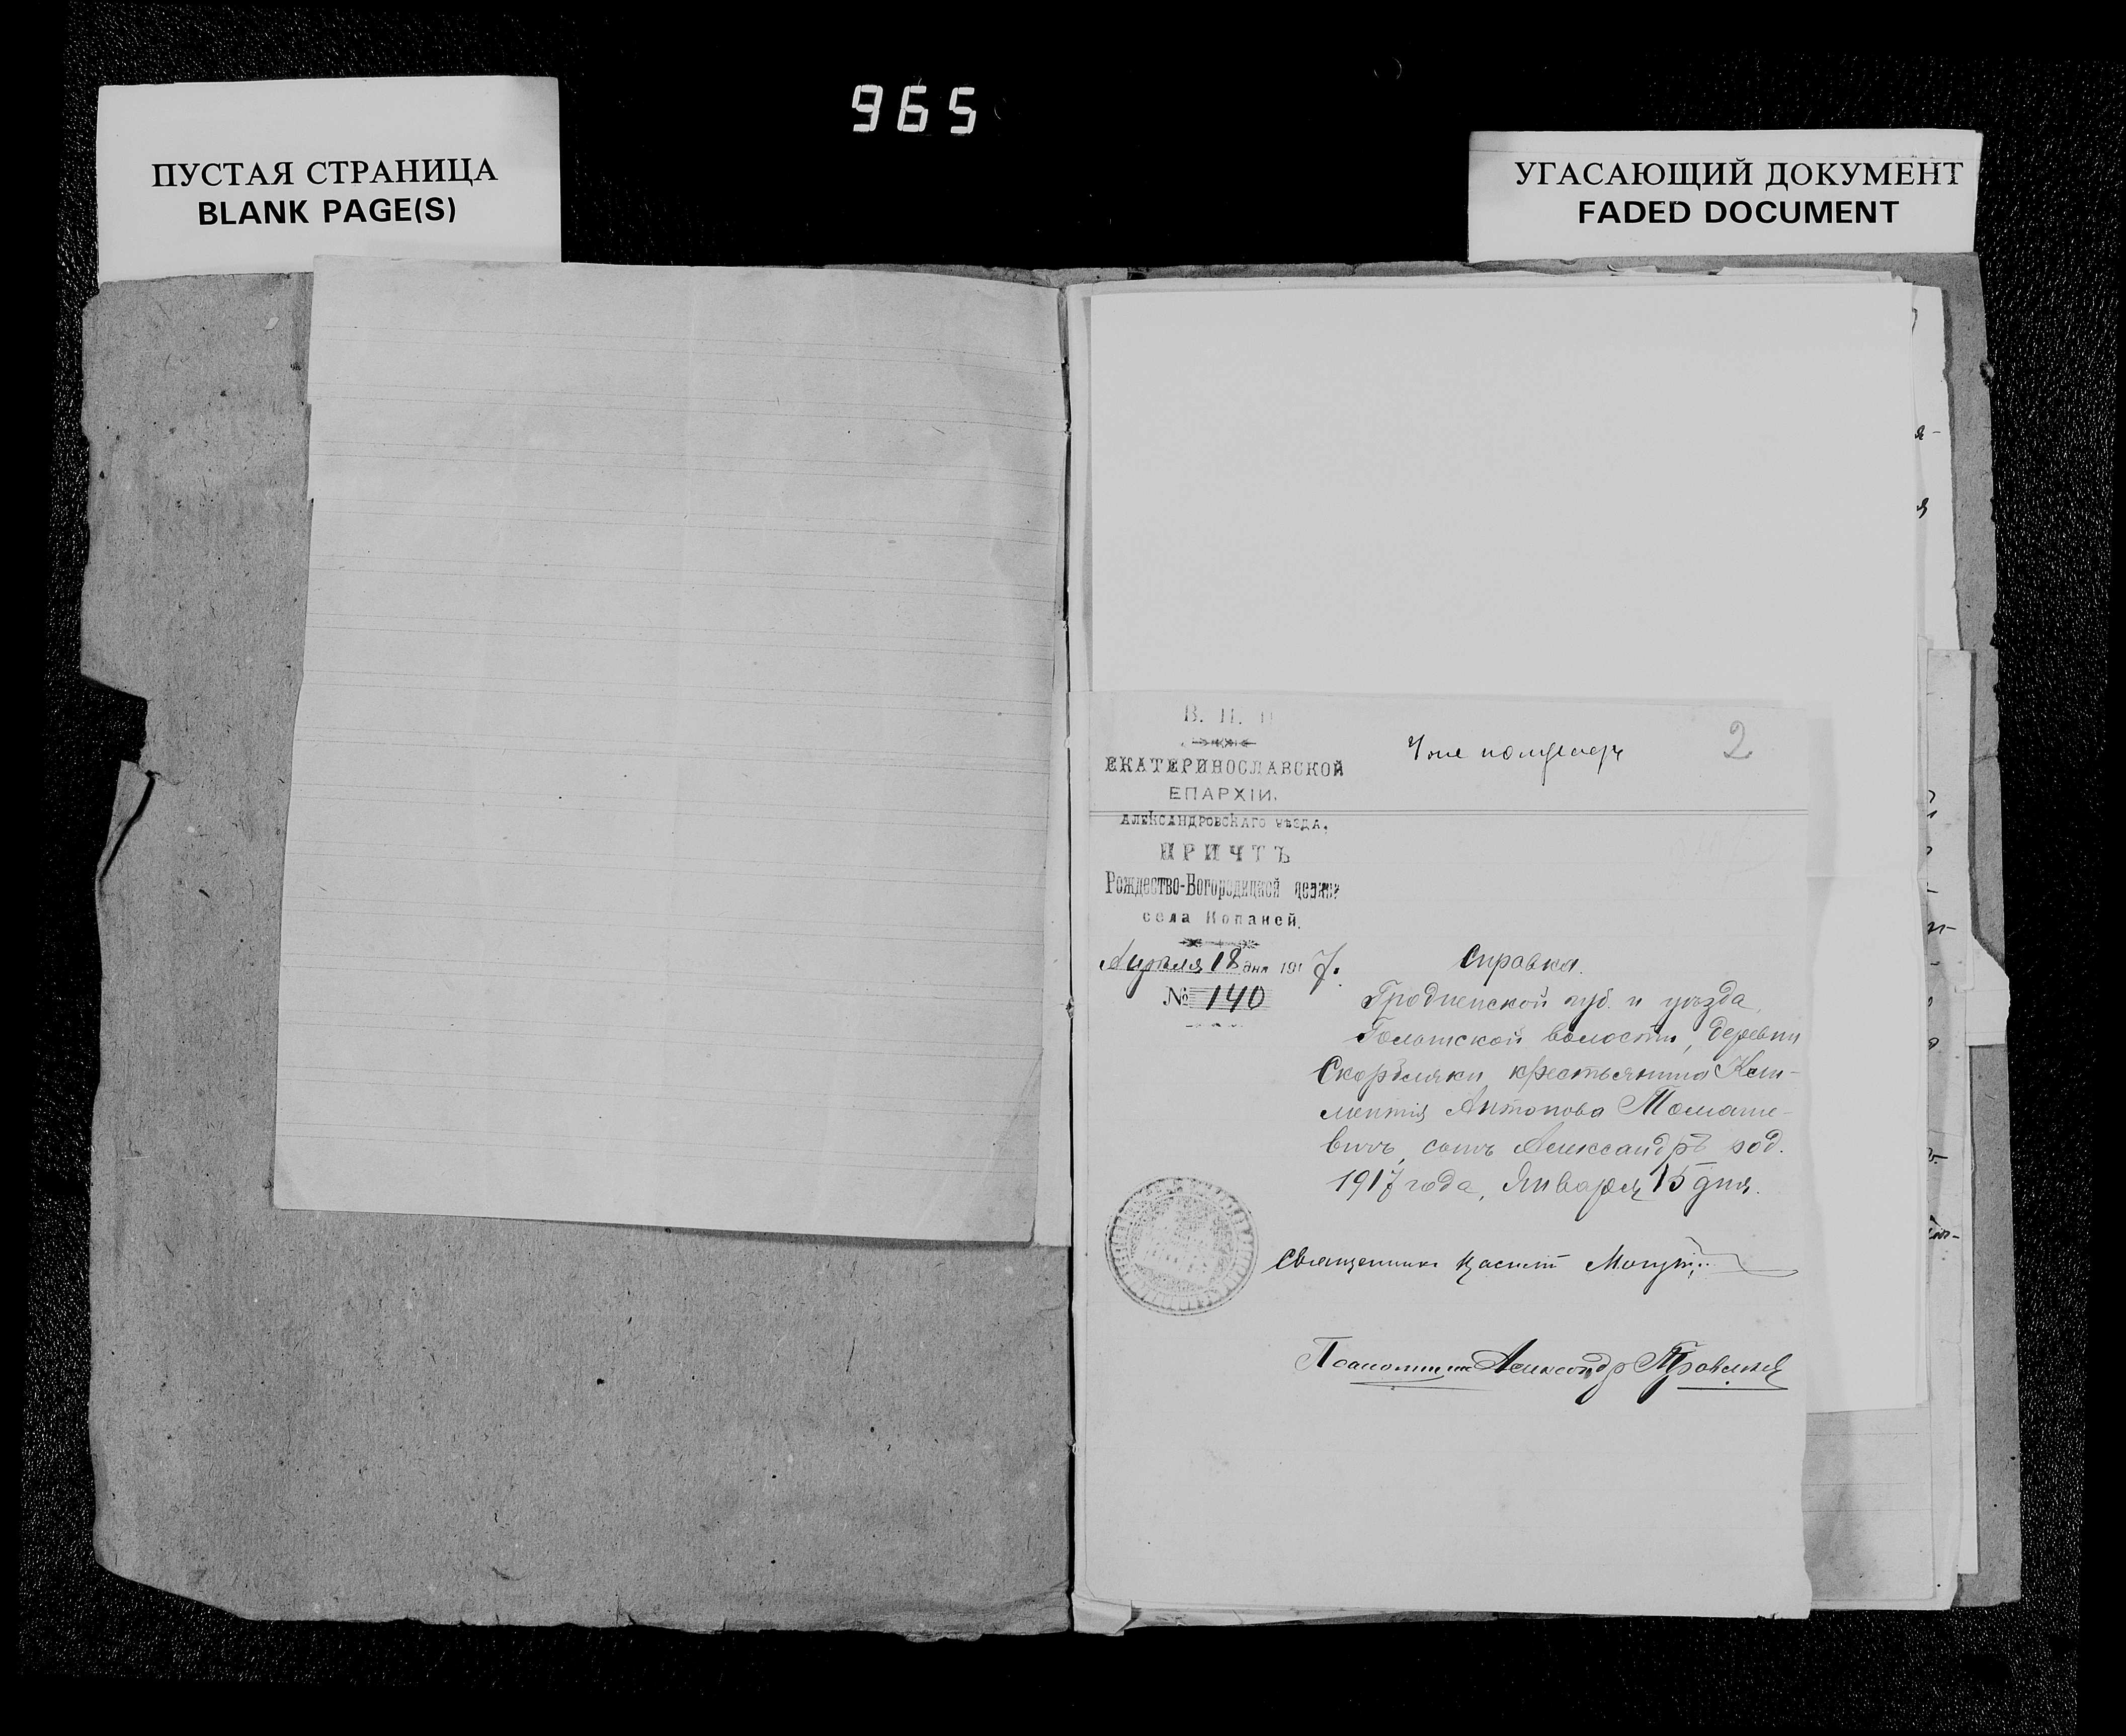 965
ПУСТАЯ СТРАНИЦА
BLANK PAGE(S)
УГАСАЮЩИЙ ДОКУМЕНТ
FADED DOCUMENT
2
В. П. И
ЕКАТЕРИНОСЛАВСКОЙ
ЕПАРХІИ.
АЛЕКСАНДРОВСКАГО УѢЗДА.
ПРИЧТЪ
Рождество-Богородицкой церкви
села Копаней.
Апрѣля 18 дня 1917.
№ 140
Справка.
Гродненской губ. и уѣзда,
волости, деревни
Скорбляки, крестьянина Кли-
ментія Антонова Томаше-
вичъ, сынъ Александръ род.
1917 года, Января 15 дня.
Священникъ
Псаломщикъ Александр